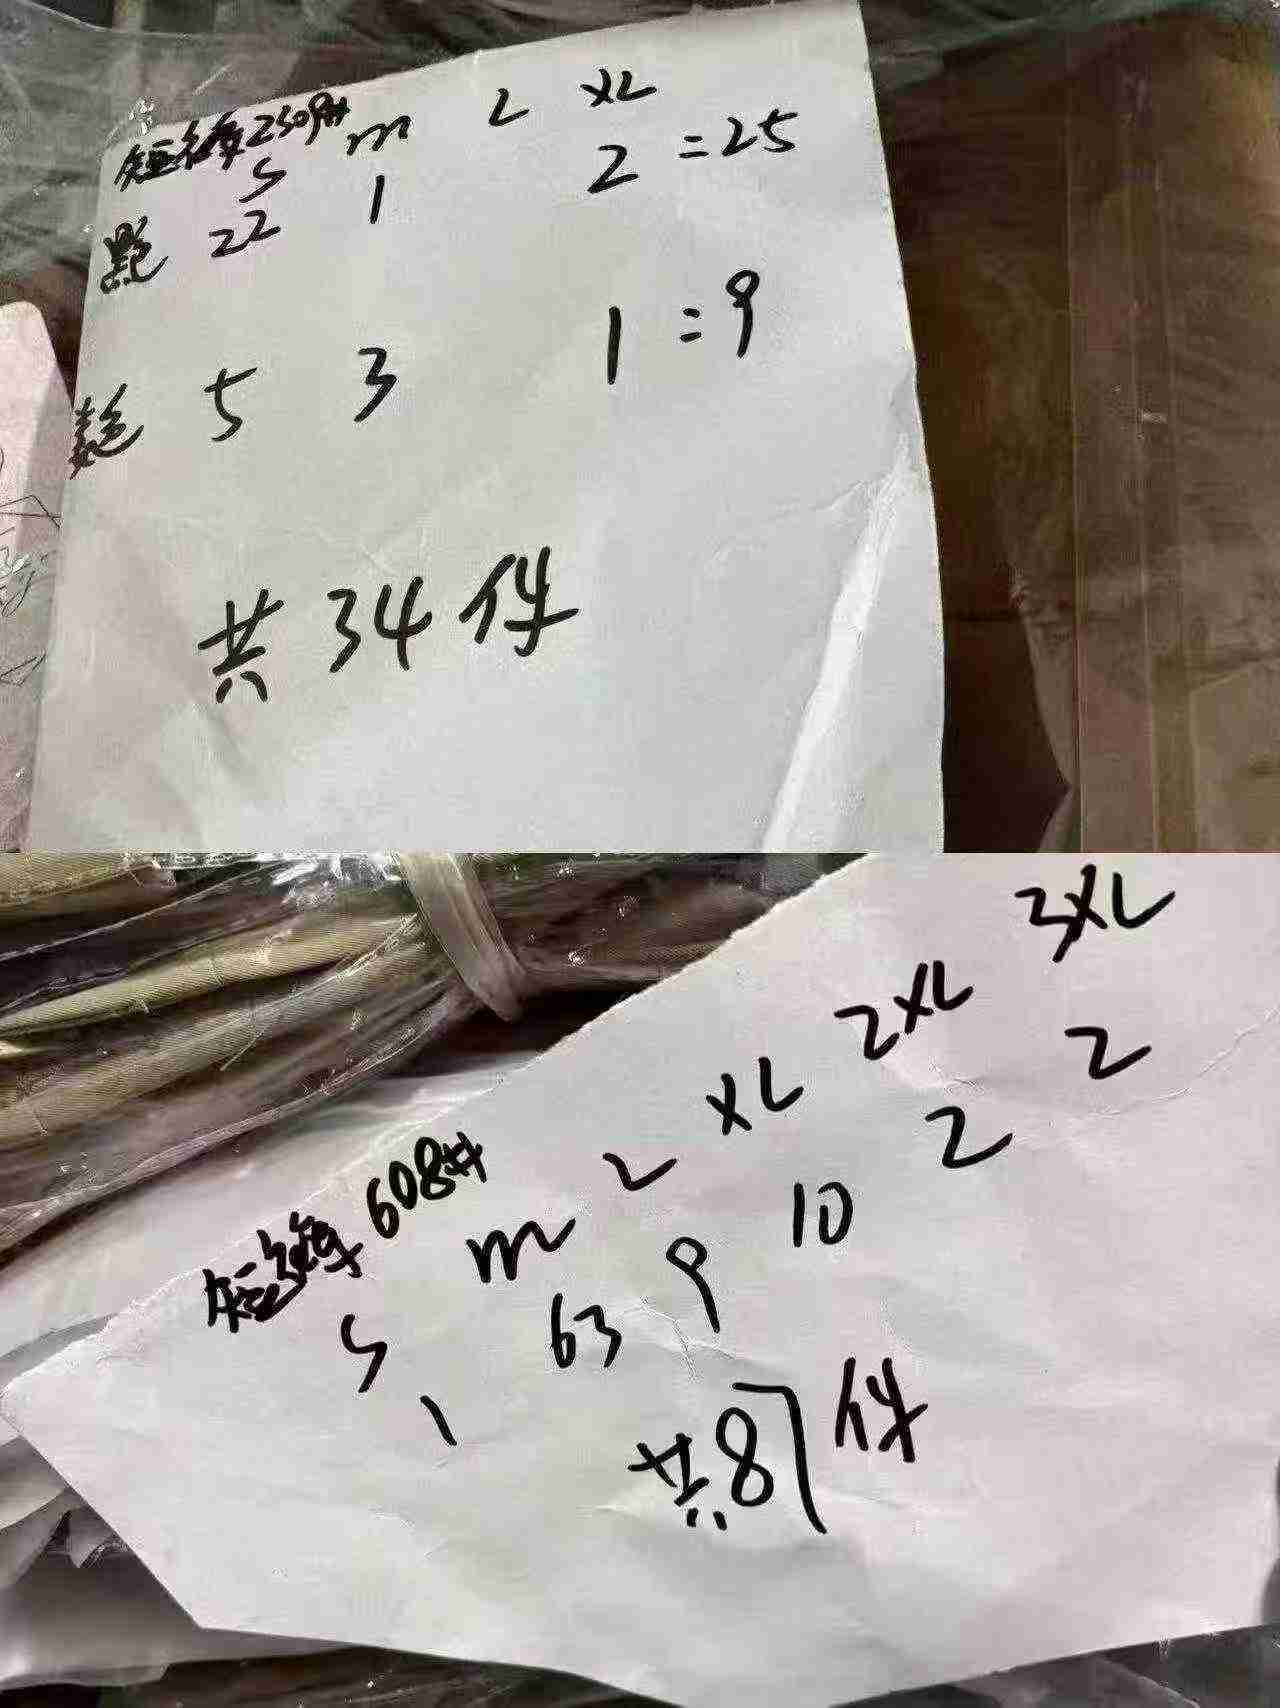 短裤2509#
S m L XL
黑色 22 1 2 =25
5 3 1 =9
共 34 件
短裤 608#
S m L XL 2XL 3XL
1 63 9 10 2 2
共87件